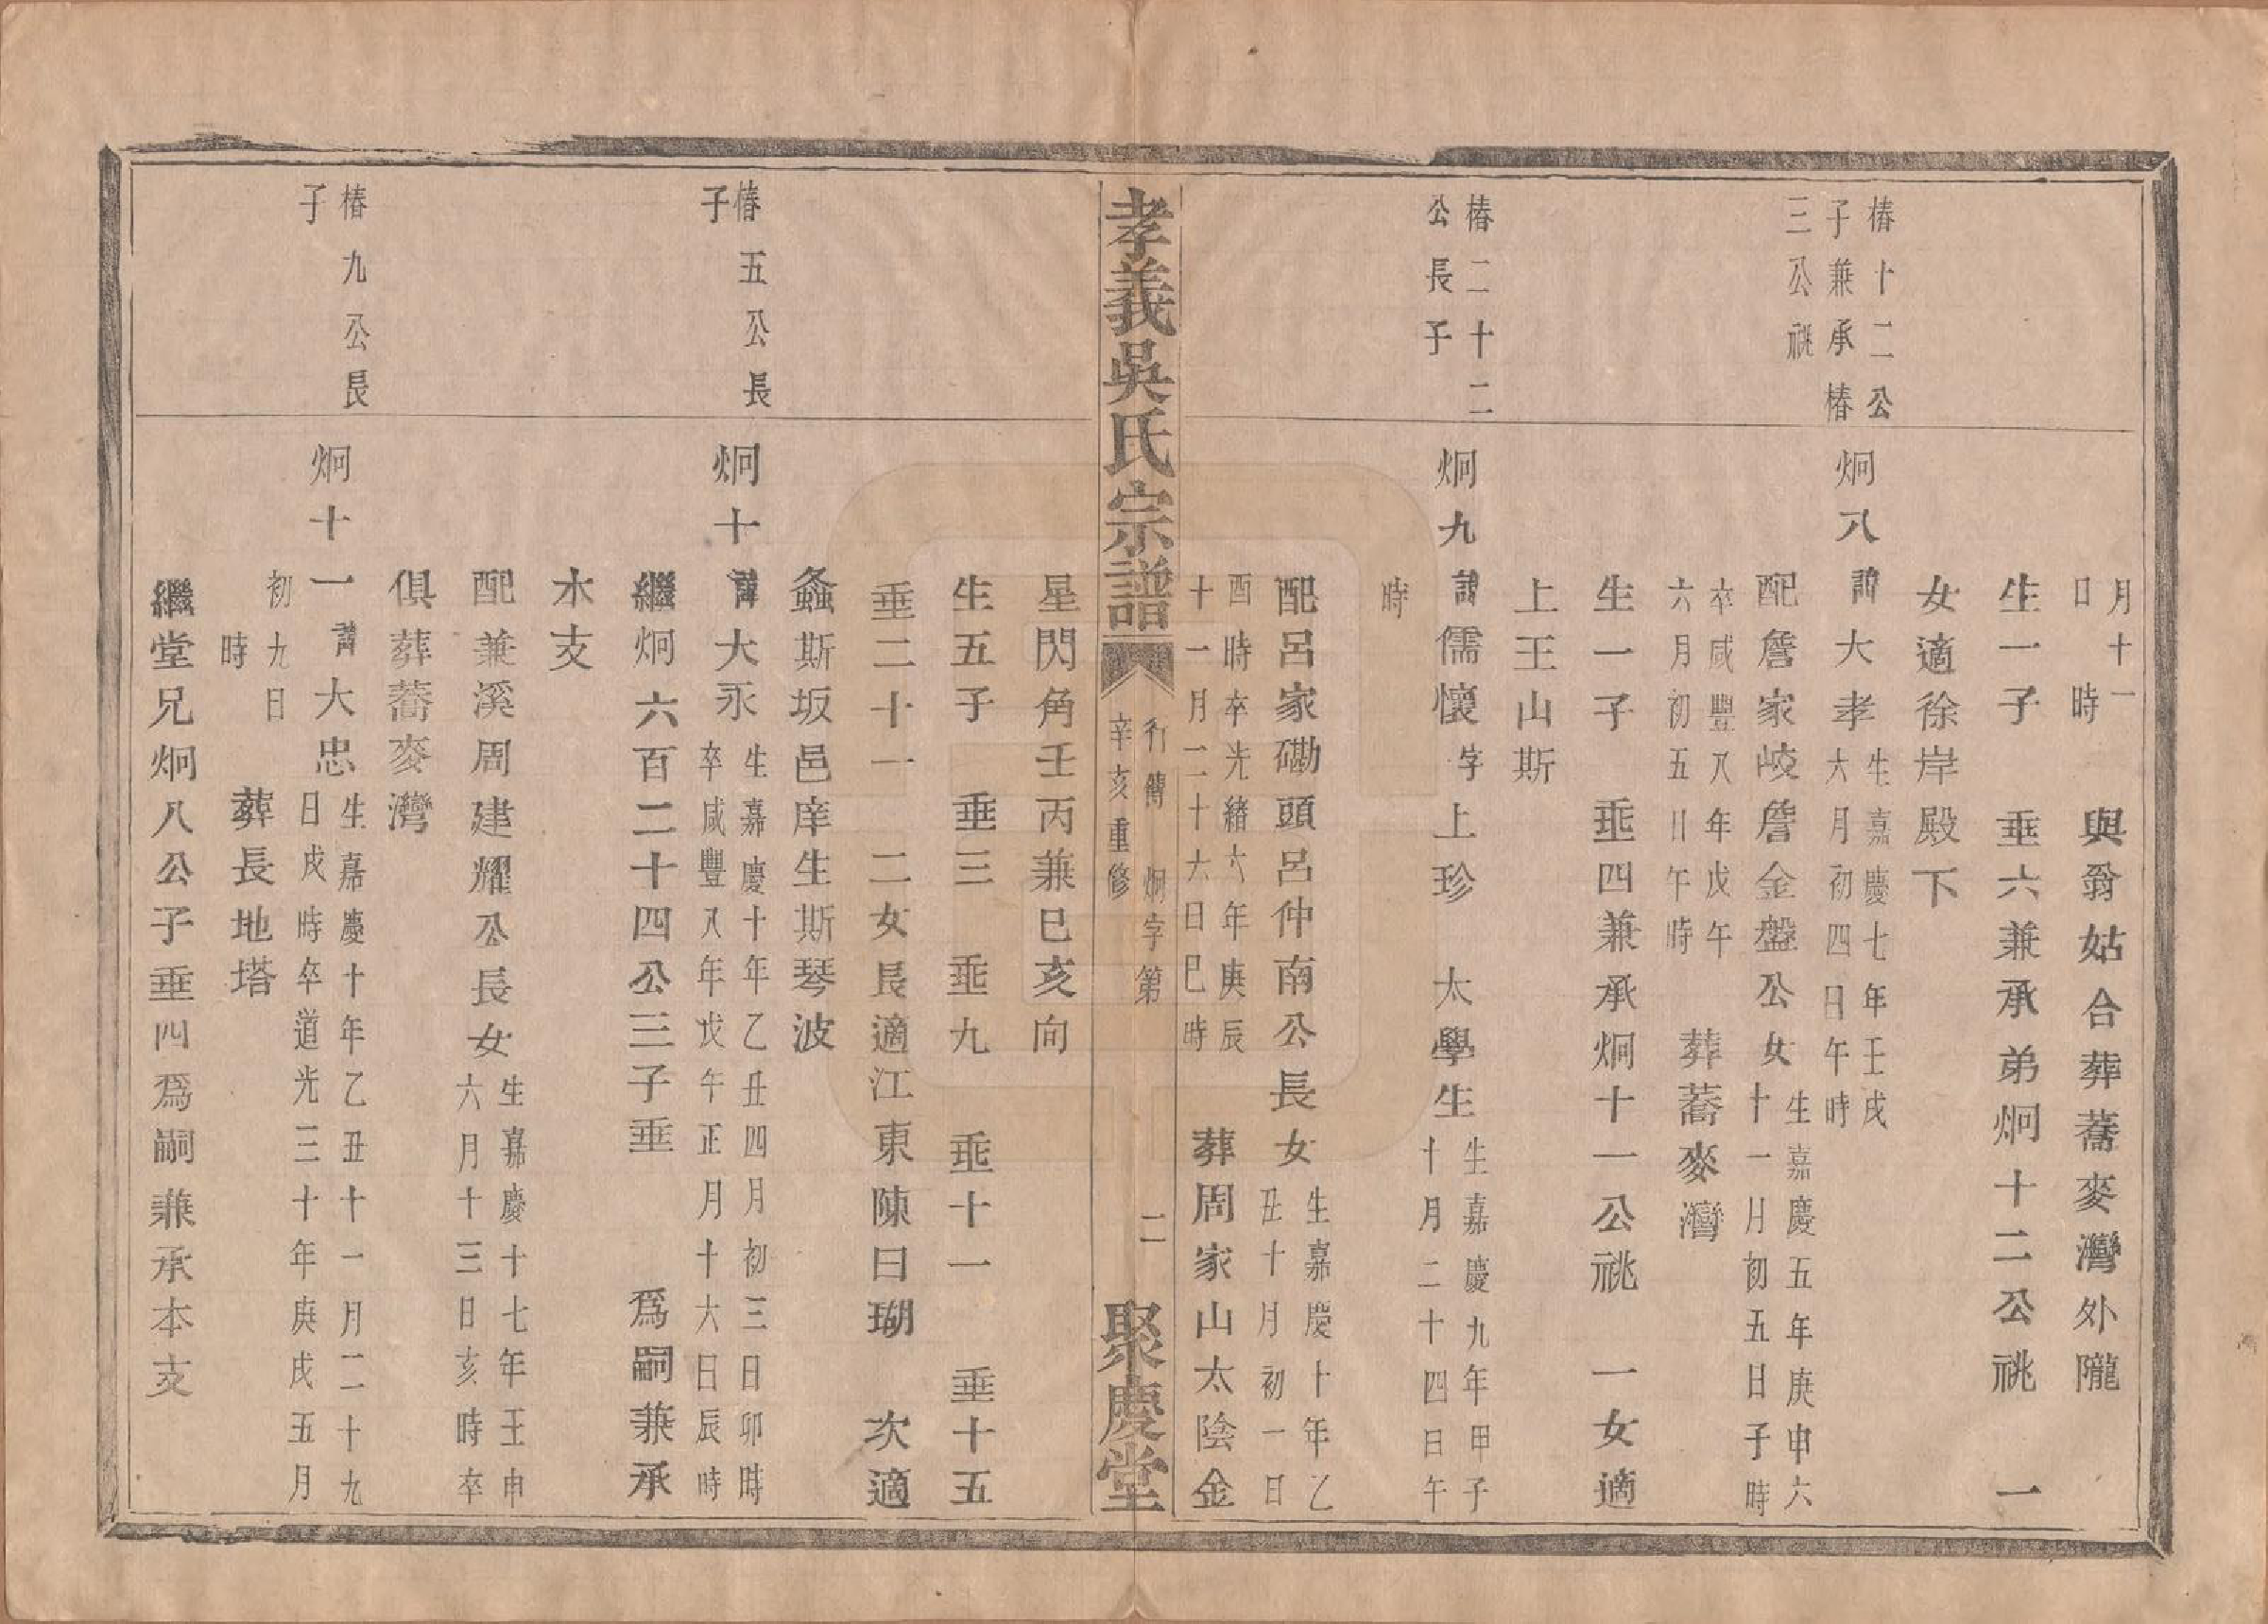 月十一
日　時
與翁姑合葬蕎麥灣外隴
生一子　垂六兼承弟炯十二公祧　一
女適徐岸殿下
椿十二公
子兼承椿
三公祧
炯八
諱大孝
生嘉慶七年壬戌
六月初四日午時
配詹家岐詹金盤公女
生嘉慶五年庚申六
十一月初五日子時
卒咸豐八年戊午
六月初五日午時
葬蕎麥灣
生一子　垂四兼承炯十一公祧　一女適
上王山斯
椿二十二
公長子
炯九
諱儒懷字上珍　太學生
生嘉慶九年甲子
十月二十四日午
時
配呂家磡頭呂仲南公長女
生嘉慶十年乙
丑十月初一日
酉時卒光緒六年庚辰
十一月二十六日巳時
葬周家山太陰金
孝義吳氏宗譜
行傳　炯字第　二
辛亥重修
聚慶堂
星閃角壬丙兼巳亥向
生五子　垂三　垂九　垂十一　垂十五
垂二十一　二女長適江東陳曰瑚　次適
螽斯坂邑庠生斯琴波
椿五公長
子
炯十
諱大永
生嘉慶十年乙丑四月初三日卯時
卒咸豐八年戊午正月十六日辰時
繼炯六百二十四公三子垂　爲嗣兼承
本支
配兼溪周建耀公長女
生嘉慶十七年壬申
六月十三日亥時卒
俱葬蕎麥灣
椿九公長
子
炯十一
諱大忠
生嘉慶十年乙丑十一月二十九
日戌時卒道光三十年庚戌五月
初九日
時
葬長地塔
繼堂兄炯八公子垂四爲嗣兼承本支